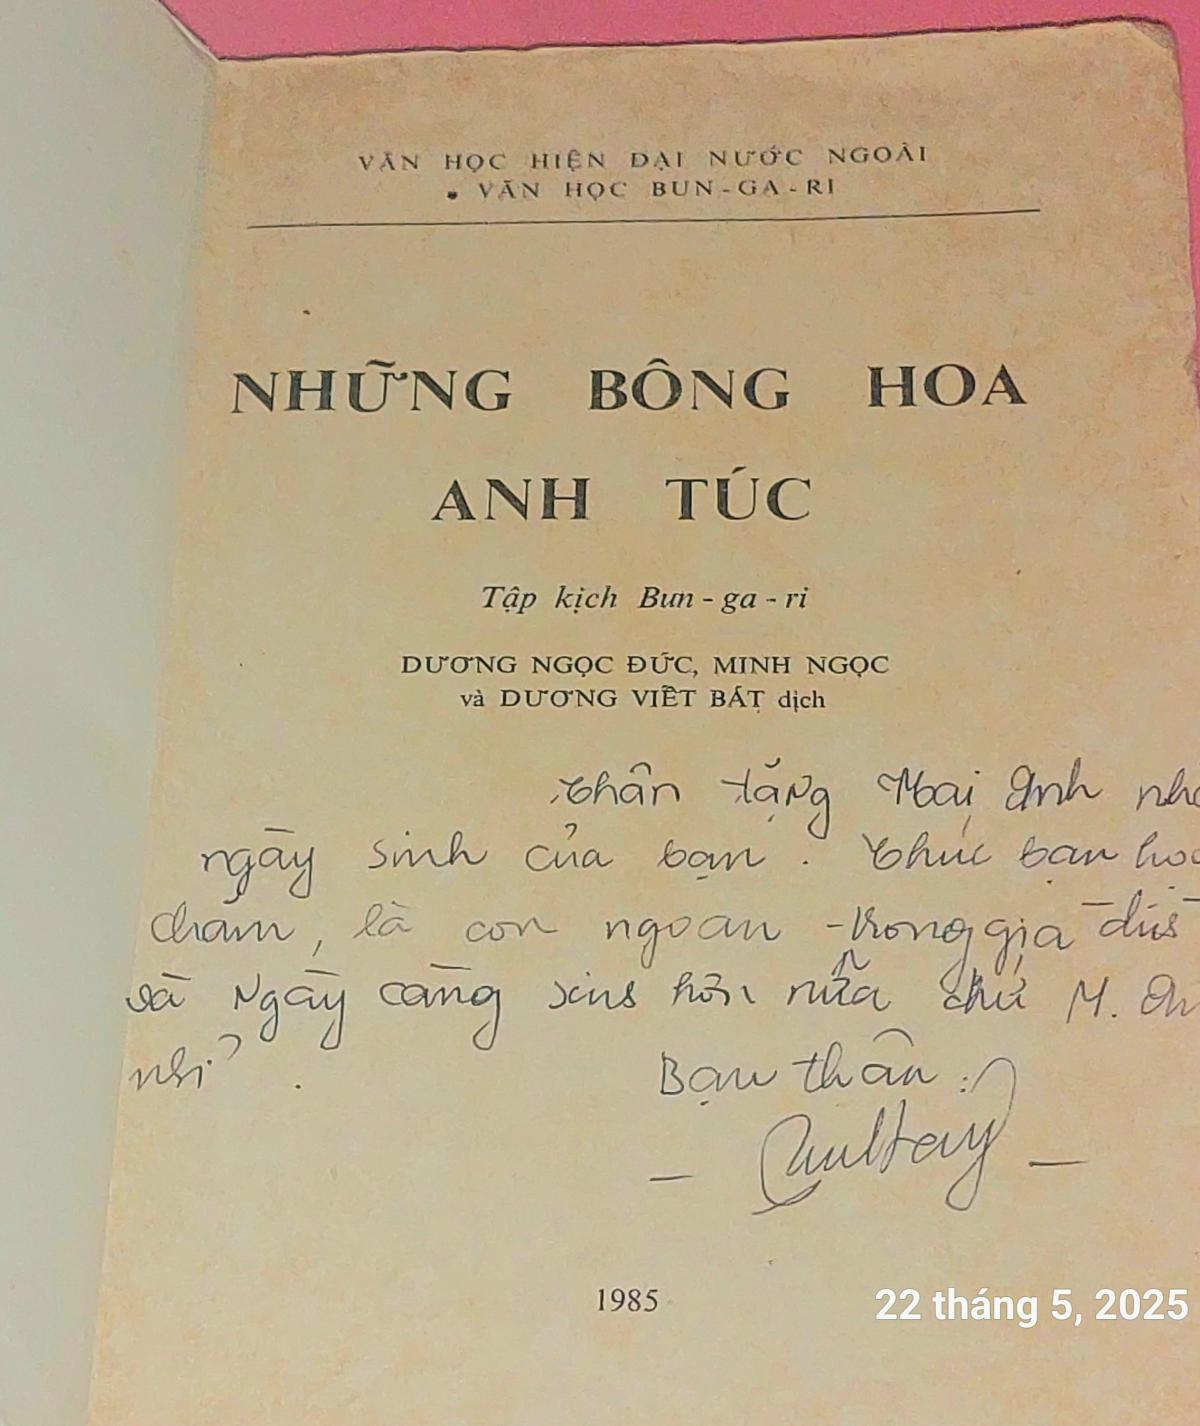 VĂN HỌC HIỆN ĐẠI NƯỚC NGOÀI
VĂN HỌC BUN-GA-RI
NHỮNG BÔNG HOA
ANH TÚC
Tập kịch Bun-ga-ri
DƯƠNG NGỌC ĐỨC, MINH NGỌC
và DƯƠNG VIẾT BÁT dịch
Thân tặng Mai Anh
ngày sinh của bạn. Chúc bạn
chăm, là con ngoan trong gia
và Ngày càng xinh hơn nữa chứ M.
nhỉ?.
Bạn thân:
1985
22 tháng 5, 2025